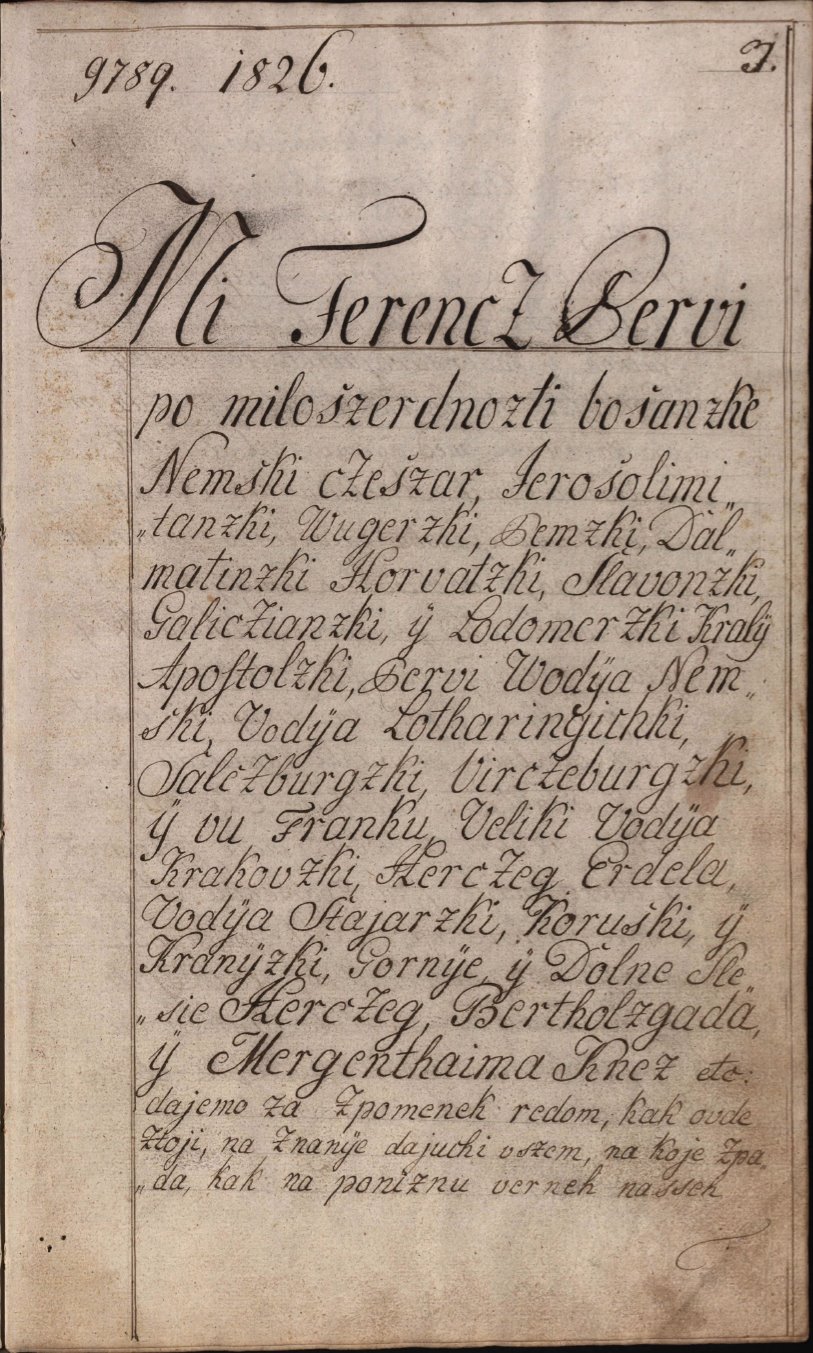 9789. 1826.
3.
Mi Ferencz Pervi
po miloszerdnozti bosanzke
Nemski czeszar, Jerosolimi„
„tanzki, Wugerzki, Pemzki, Dal„
matinzki Horvatzki, Slavonzki,
Galiczianzki, ÿ Lodomerzki Kralÿ
Apostolzki, Pervi Wodÿa Nem„
ski, Vodÿa Lotharingichki,
Salczburgzki, Virczeburgzki,
ÿ vu Franku, Veliki Vodÿa
Krakovzki, Herczeg Erdela,
Vodÿa Stajarzki, Koruski, ÿ
Kranÿzki, Gornÿe, ÿ Dolne Sle„
„sie Herczeg, Bertholzgada,
ÿ Mergenthaima Knez etc:
dajemo za zpomenek redom, kak ovde
ztoji, na znanÿe dajuchi vszem, na koje zpa„
„da, kak na poniznu verneh nasseh